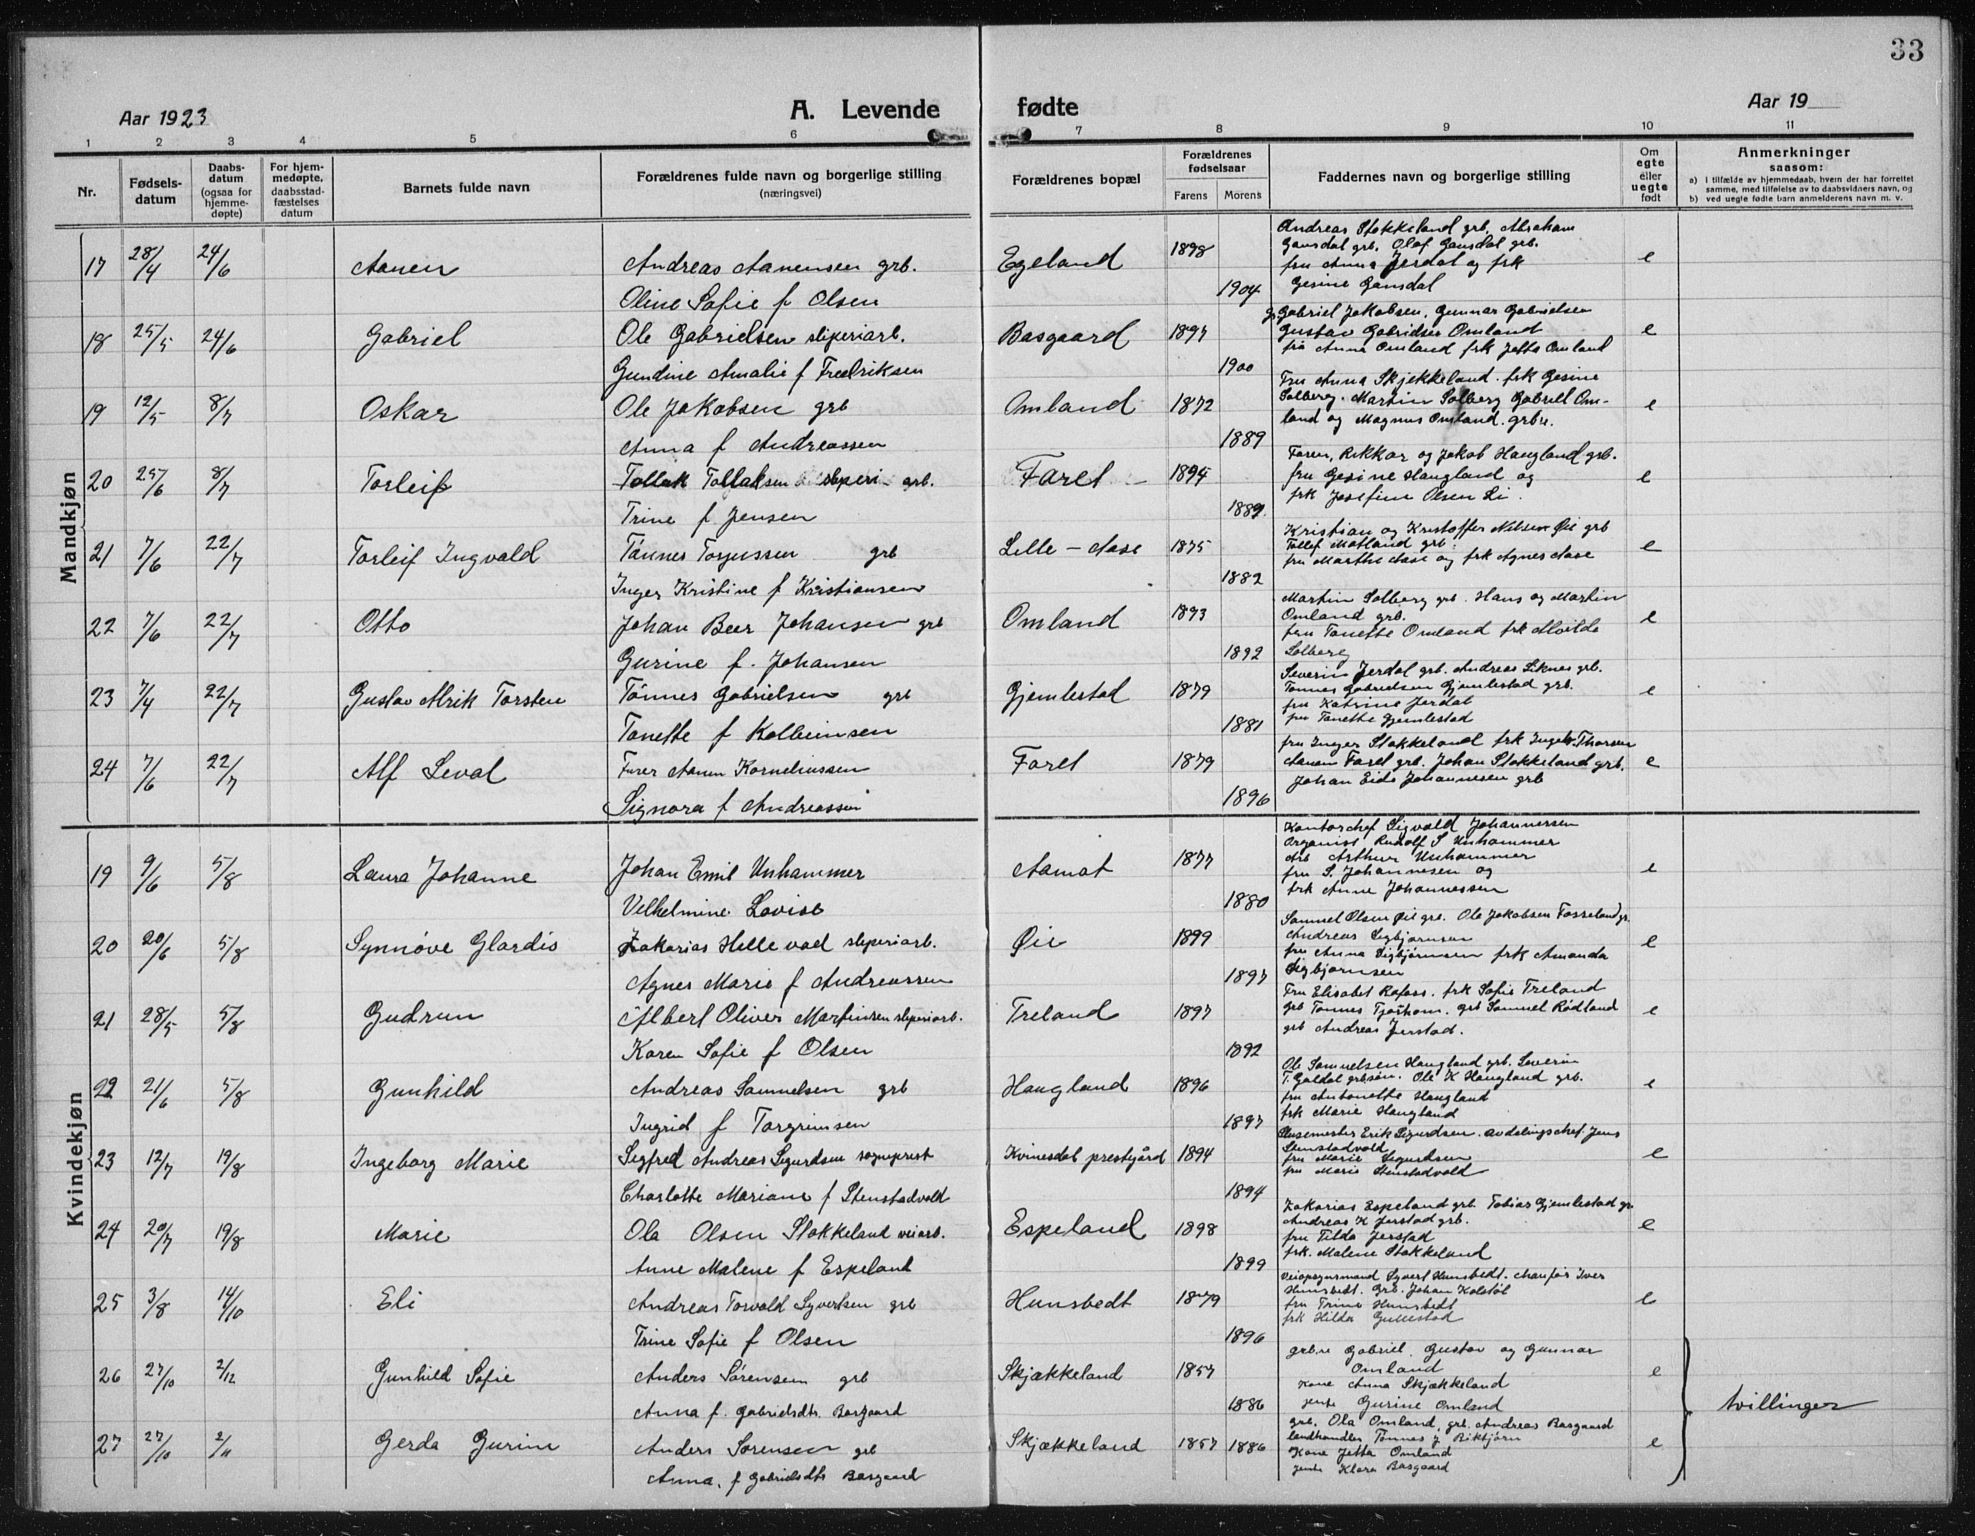 33
Aar 1923
A. Levende fødte
Aar 19
1 2 3 4 5 6 7 8 9 10 11
Nr.
Fødsels-
datum
Daabs-
datum
(ogsaa for
hjemme-
døpte)
For hjem-
medøpte,
daabsstad-
fæstelses
datum
Barnets fulde navn
Forældrenes fulde navn og borgerlige stilling
(næringsvei)
Forældrenes bopæl
Forældrenes
fødselsaar
Farens Morens
Faddernes navn og borgerlige stilling
Om
egte
eller
uegte
født
Anmerkninger
saasom:
a) I tilfælde av hjemmedaab, hvem der har forrettet
samme, med tilføielse av to daabsvidners navn, og
b) ved uegte fødte barn anmelderens navn m. v.
Mandkjøn
17 28/4 24/6 Aanen Andreas Aanensen grb. Egeland 1898 e
Oline Sofie f Olsen 1904
Andreas Stokkeland grb. Abraham
Gansdal grb. Olaf Gansdal grb.
fru Anna Jerdal og frk
Gesine Gansdal
18 25/5 24/6 Gabriel Ole Gabrielsen sliperiarb. Basgaard 1897 e
Gundine Amalie f Fredriksen 1900
Gabriel Jakobsen, Gunnar Gabrielsen
Gustav Gabrielsen Omland
fru Anna Omland frk Jetta Omland
19 12/5 8/7 Oskar Ole Jakobsen grb Omland 1872 e
Anna f Andreassen 1889
Fru Anna Skjekkeland. frk Gesine
Solberg. Martin Solberg Gabriell Om-
land og Magnus Omland. grb.
20 25/6 8/7 Torleif Tollak Tollaksen sliperi grb. Faret 1894 e
Trine f Jensen 1889
Faren, Rikkar og Jakob Haugland grb.
fru Gesine Haugland og
frk Josefine Olsen Li.
21 7/6 22/7 Torleif Ingvald Tønnes Torjussen grb Lille-Aase 1875 e
Inger Kristine f Kristiansen 1882
Kristian og Kristoffer Nilsen Øie grb
Tollef Motland grb.
fru Marthe Aase og frk Agnes Aase
22 7/6 22/7 Otto Johan Beer Johansen grb Omland 1893 e
Gurine f. Johansen 1892
Martin Solberg grb. Hans og Martin
Omland grb.
fru Tonette Omland frk Alvilde
Solberg
23 7/4 22/7 Gustav Alrik Torsten Tønnes Gabrielsen grb Gjemlestad 1879 e
Tonette f Kolbeinsen 1881
Severin Jerdal grb. Andreas Liknes grb.
Tønnes Gabrielsen Gjemlestad grb.
fru Katrine Jerdal
fru Tonette Gjemlestad
24 7/6 22/7 Alf Leval Furer Aanen Korneliussen Faret 1879 e
Signora f Andreassen 1896
fru Inger Stokkeland frk Ingeb. Thorsen
Aanen Faret grb. Johan Stokkeland grb.
Johan Eide Johannesen grb
Kvindekjøn
19 9/6 5/8 Laura Johanne Johan Emil Unhammer Aamot 1877 e
Vilhelmine Lovise 1880
Kontorchef Sigvald Johannessen
Organist Rudolf S Unhammer
Arb Arthur Unhammer
fru S. Johannesen og
frk Anne Johannessen
20 20/6 5/8 Synnøve Glardis Zakarias Hellevad sliperiarb. Øie 1899 e
Agnes Marie f Andreassen 1897
Samuel Olsen Øie grb. Ole Jakobsen Fosseland gr.
Andreas Sigbjørnsen
fru Anna Sigbjørnsen frk Amanda
Sigbjørnsen
21 28/5 5/8 Gudrun Albert Oliver Martinsen sliperiarb. Treland 1897 e
Karen Sofie f Olsen 1892
Fru Elisabet Rafoss. frk Sofie Treland
grb Tønnes Tjørhom. grb Samuel Rødland
grb Andreas Jerstad.
22 21/6 5/8 Gunhild Andreas Samuelsen grb Haugland 1896 e
Ingrid f Torgrimsen 1897
Ole Samuelsen Haugland grb. Severin
T. Galdal grbsøn. Ole K Haugland grb.
fru Antonette Haugland
frk Marie Haugland
23 12/7 19/8 Ingeborg Marie Sigfred Andreas Sigurdsen sogneprest Kvinesdal prestgård 1894 e
Charlotte Mariane f Stenstadvold 1894
Slusemester Erik Sigurdsen. avdelingschef. Jens
Stenstadvold
fru Marie Sigurdsen
fru Marie Stenstadvold
24 20/7 19/8 Marie Ola Olsen Stokkeland veiarb. Espeland 1898 e
Anne Malene f Espeland 1899
Zakarias Espeland grb. Tobias Gjemlestad gr.
Andreas K Jerstad grb.
fru Tilda Jerstad
frk. Malene Stokkeland
25 3/8 14/10 Eli Andreas Torvald Syvertsen grb Hunsbedt 1879 e
Trine Sofie f Olsen 1896
Veiopsynsmand Syvert Hunsbedt. chauffør Iver
Hunsbedt. Grb. Johan Kolstøl
fru Trine Hunsbedt
frk Hilda Gullestad
26 27/10 2/12 Gunhild Sofie Anders Sørensen grb Skjækkeland 1857 e
Anna f. Gabrielsdtr. Basgaard 1886
grb.e Gabriel, Gustav og Gunnar
Omland
Kone Anna Skjækkeland
jente Gurine Omland
tvillinger
27 27/10 2/11 Gerda Gurine Anders Sørensen grb Skjækkeland 1857 1886 e
Anna, f Gabrielsdtr Basgaard
grb. Ola Omland, grb. Andreas Basgaard
landhandler Tønnes J Birktjørn
Kone Jetta Omland
jente Klara Basgaard